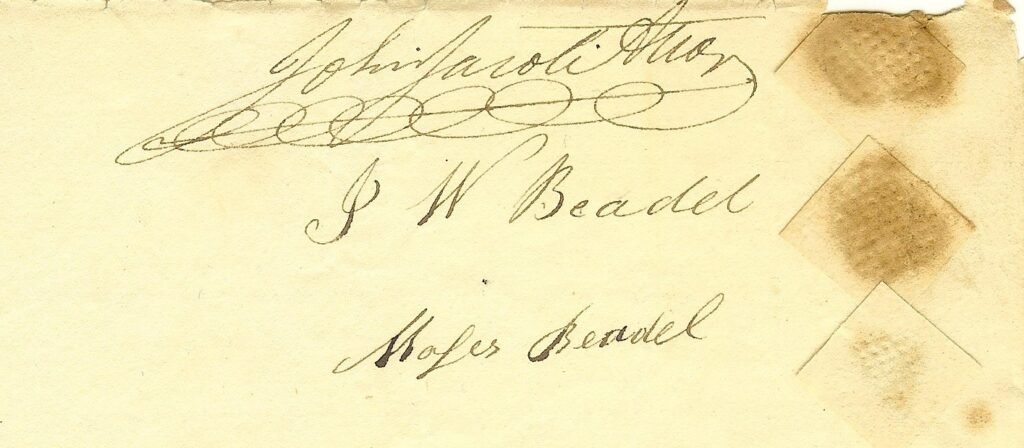 John Jacob Astor
J W Beadel
Moses Beadel